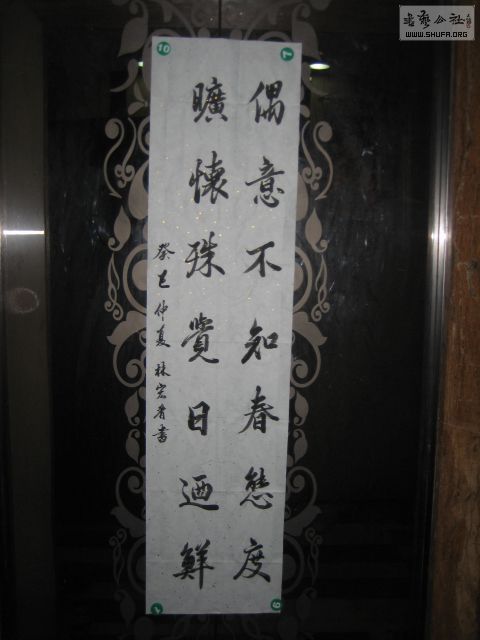 偶意不知春態度
曠懷珠覺日迺鮮
癸巳仲夏林宏者書
書藝公社
WWW.SHUFA.ORG
10
7
6